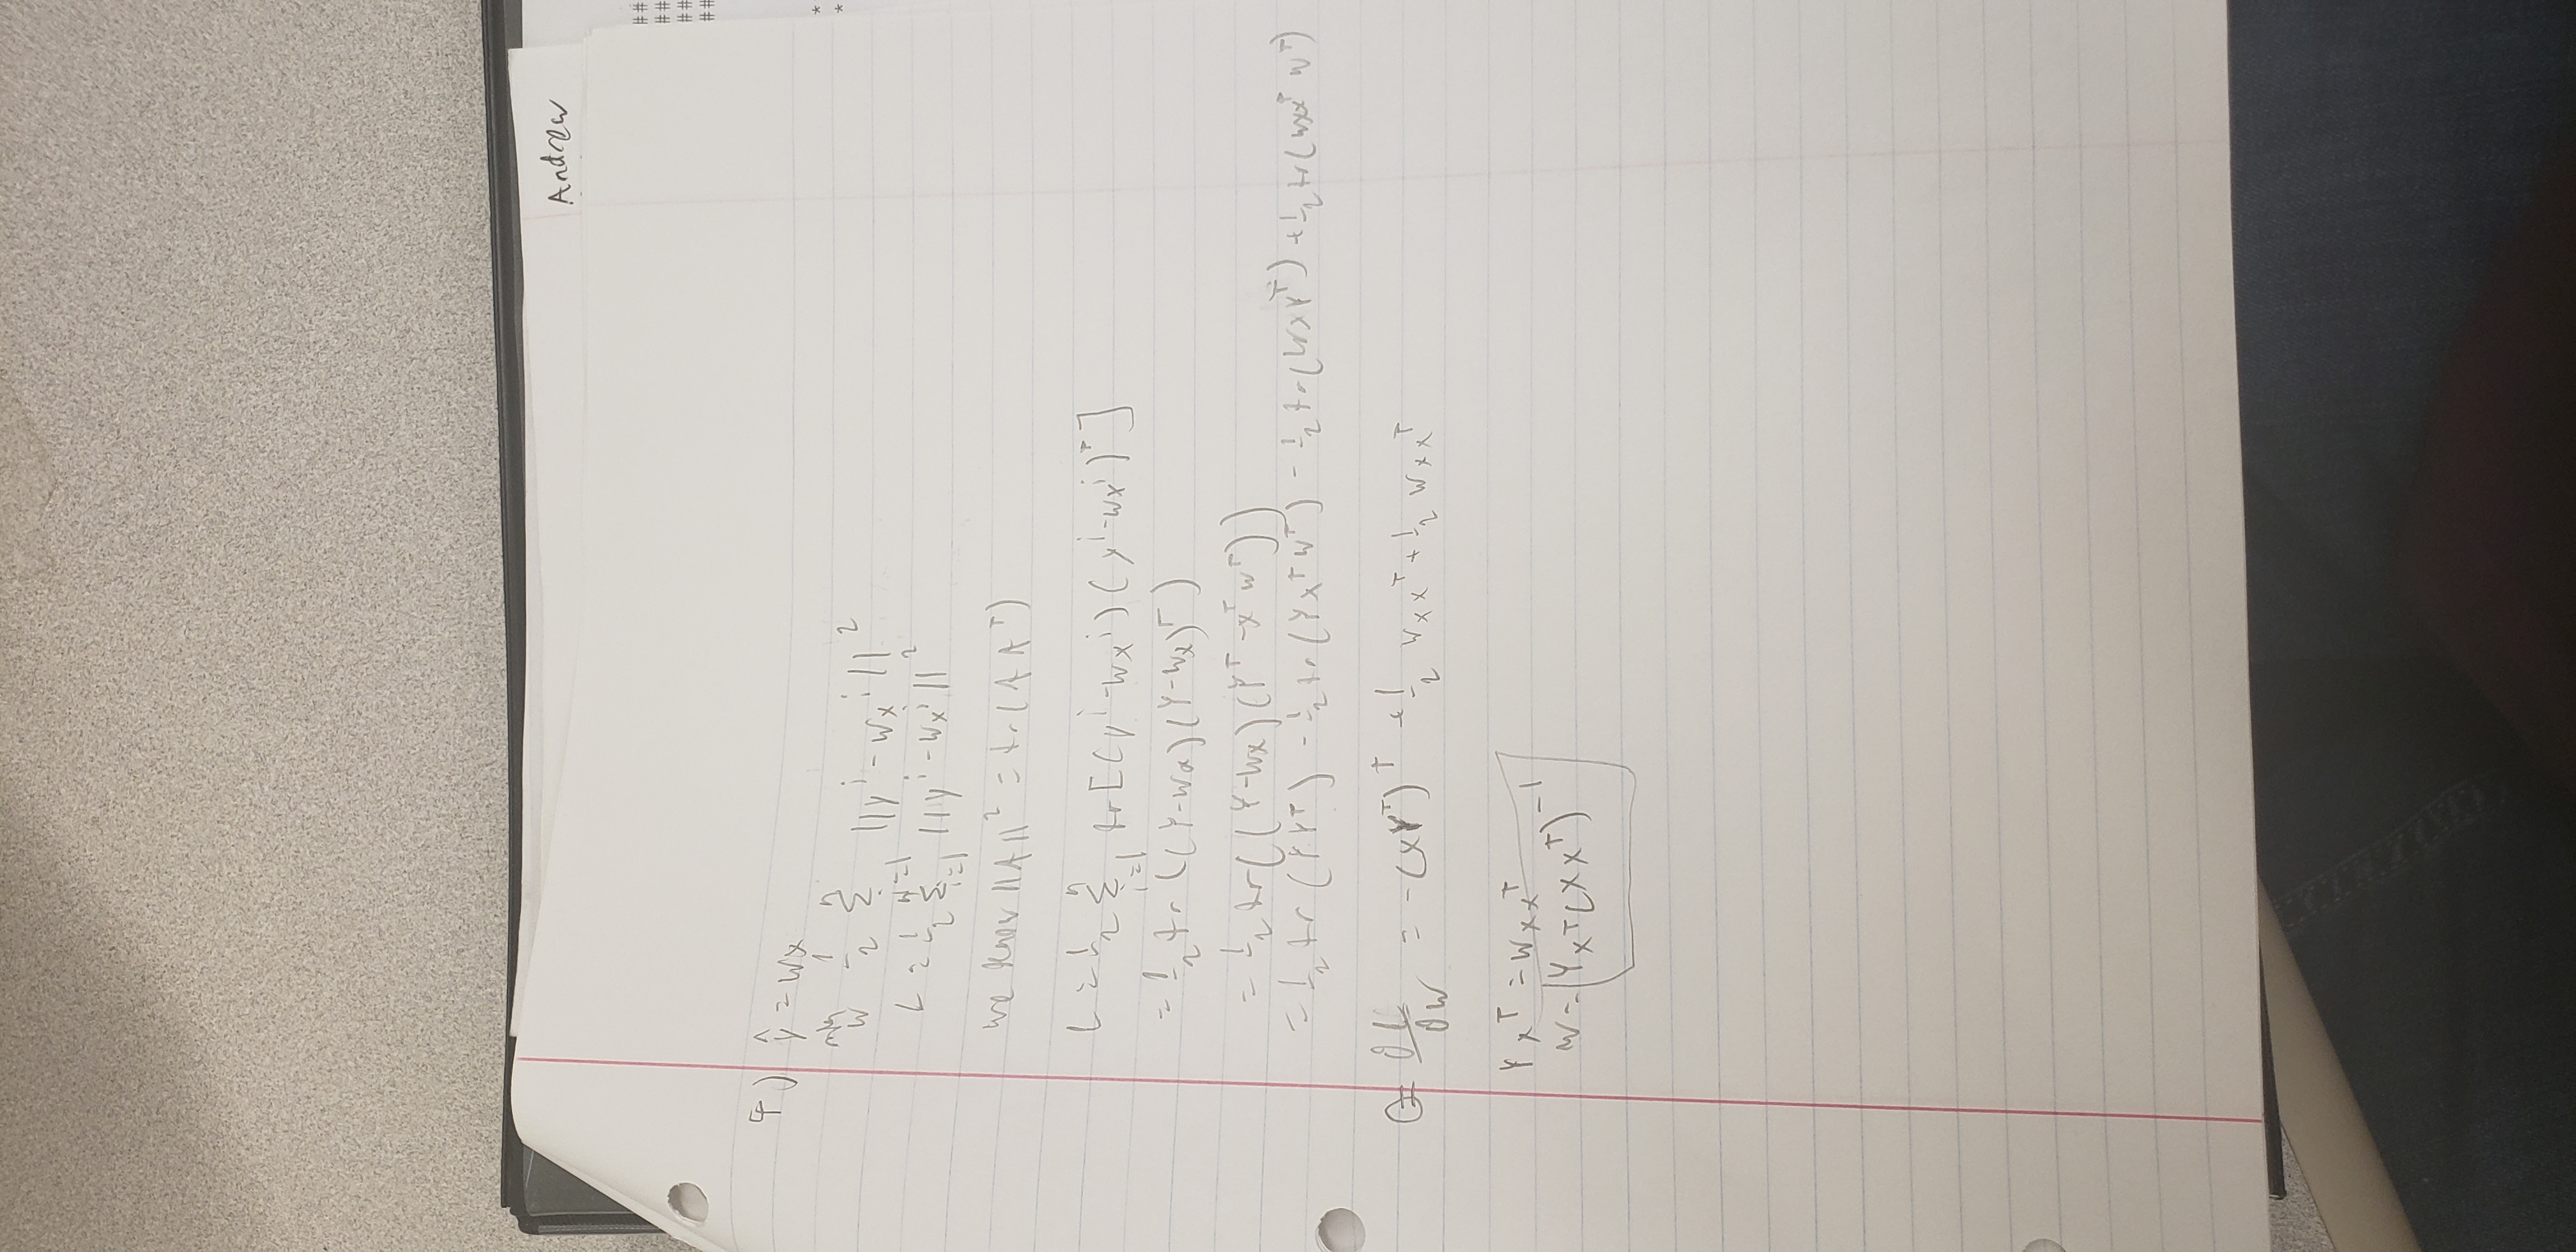 Andrew
##
##
##
##
*
*
4) ŷ = Wx
min W 1/2 Σ i=1 n ||y^i - Wx^i||^2
L = 1/2 Σ i=1 n ||y^i - Wx^i||^2
we know ||A||^2 = tr(AA^T)
L = 1/2 Σ i=1 n tr[(y^i - Wx^i)(y^i - Wx^i)^T]
= 1/2 tr((Y-Wx)(Y-Wx)^T)
= 1/2 tr((Y-Wx)(Y^T - x^T W^T))
= 1/2 tr(YY^T) - 1/2 tr(Yx^T W^T) - 1/2 tr(WxY^T) + 1/2 tr(Wxx^T W^T)
0 = ∂L/∂W = -(xY^T)^T + 1/2 Wxx^T + 1/2 Wxx^T
Yx^T = Wxx^T
W = Yx^T(xx^T)^-1